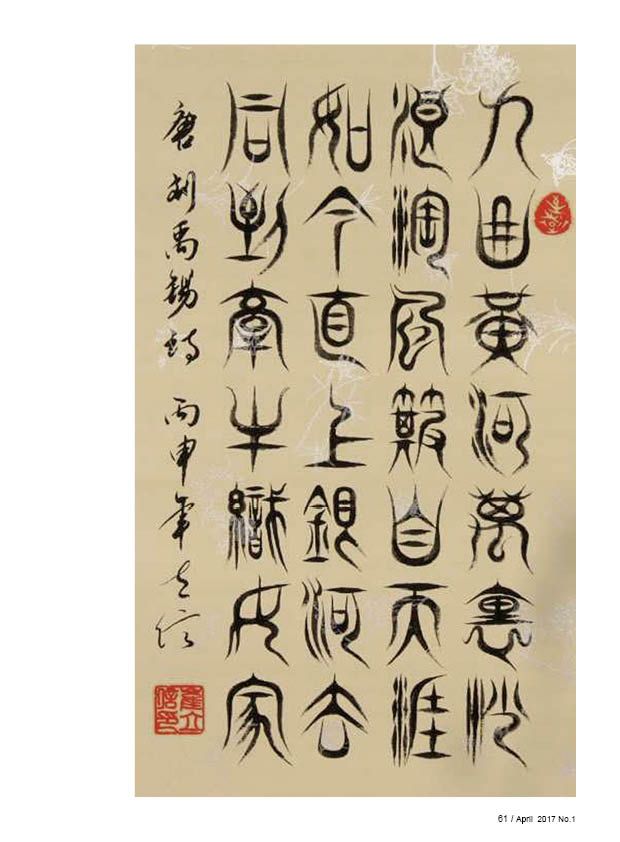 九曲黃河萬裏沙
浪淘風簸自天涯
如今直上銀河去
同到牽牛織女家
唐刘禹錫詩 丙申年立信
61 / April 2017 No.1